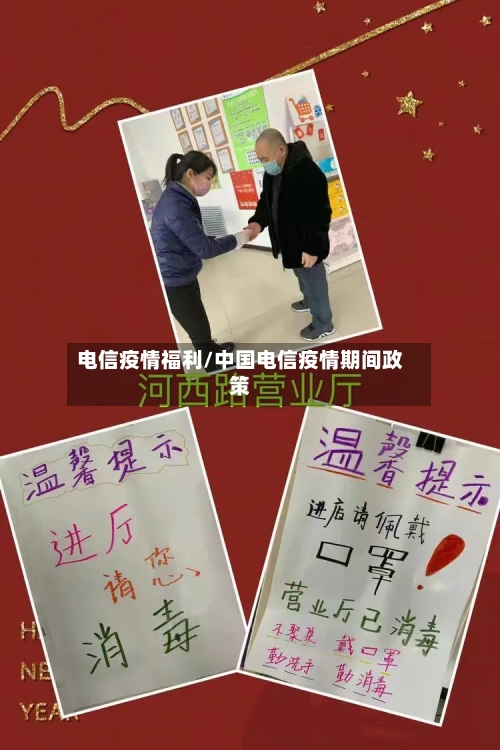 电信疫情福利/中国电信疫情期间政
策
河西路营业厅
温馨提示
进厅
请您
消毒
温馨提示
进店请佩戴
口罩!
营业厅已消毒
不聚集 戴口罩
勤洗手 勤消毒
NE
YEA